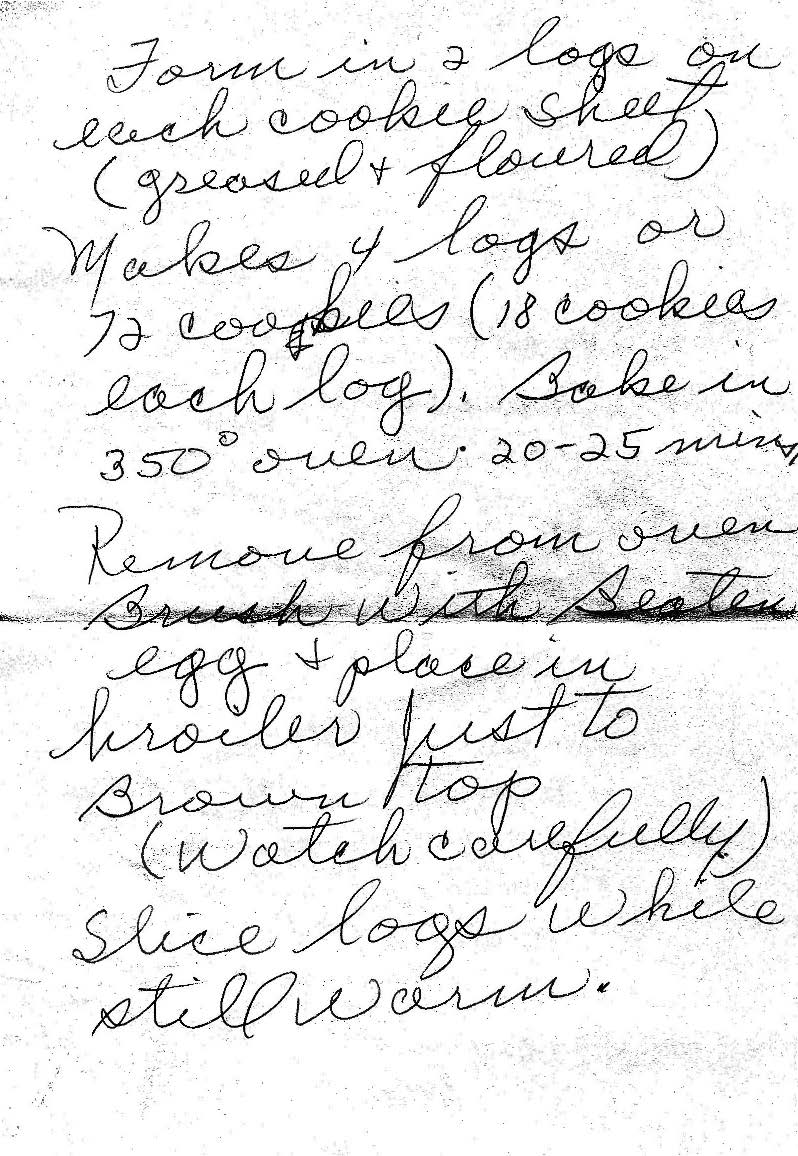 Form in 2 logs on
each cookie sheet
(greased + floured)
Makes 4 logs or
72 cookies (18 cookies
each log). Bake in
350° oven. 20-25 mins,
Remove from oven
Brush with Beaten
egg + place in
broiler just to
Brown top
(Watch carefully)
Slice logs while
still warm.